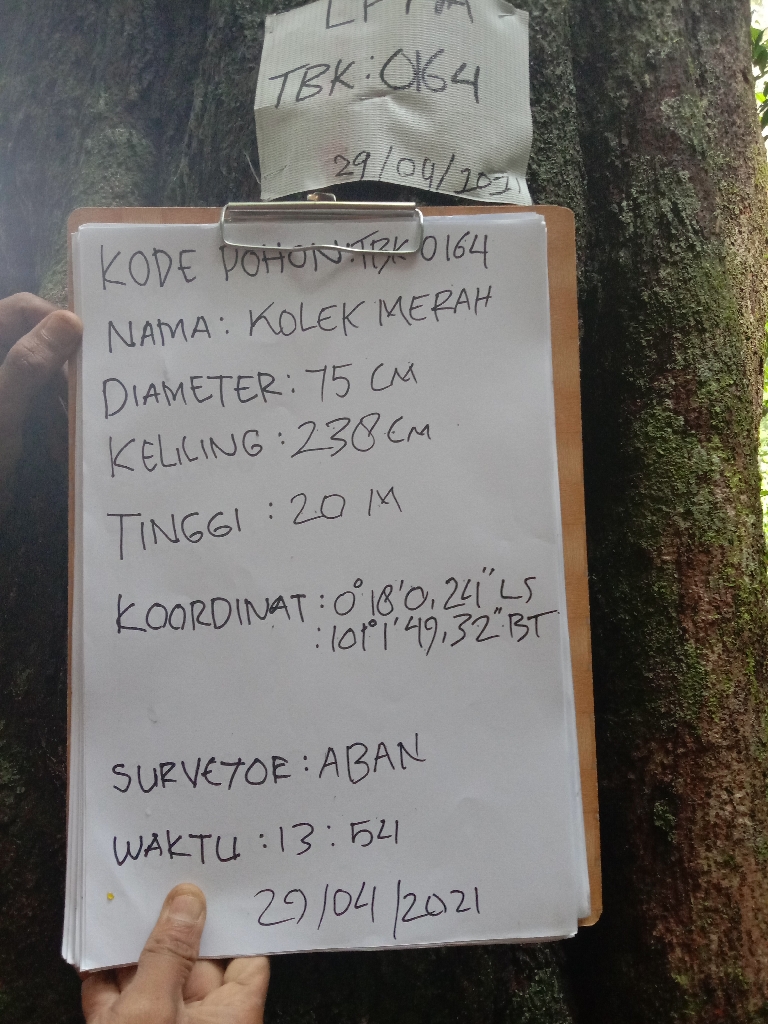 TBK:0164
29/04/2021
KODE POHON:TBK 0164
NAMA: KOLEK MERAH
DIAMETER: 75 CM
KELILING: 238 CM
TINGGI: 20 M
KOORDINAT: 0°18'0,24" LS
: 101°1'49,32" BT
SURVEYOR: ABAN
WAKTU: 13:54
29/04/2021